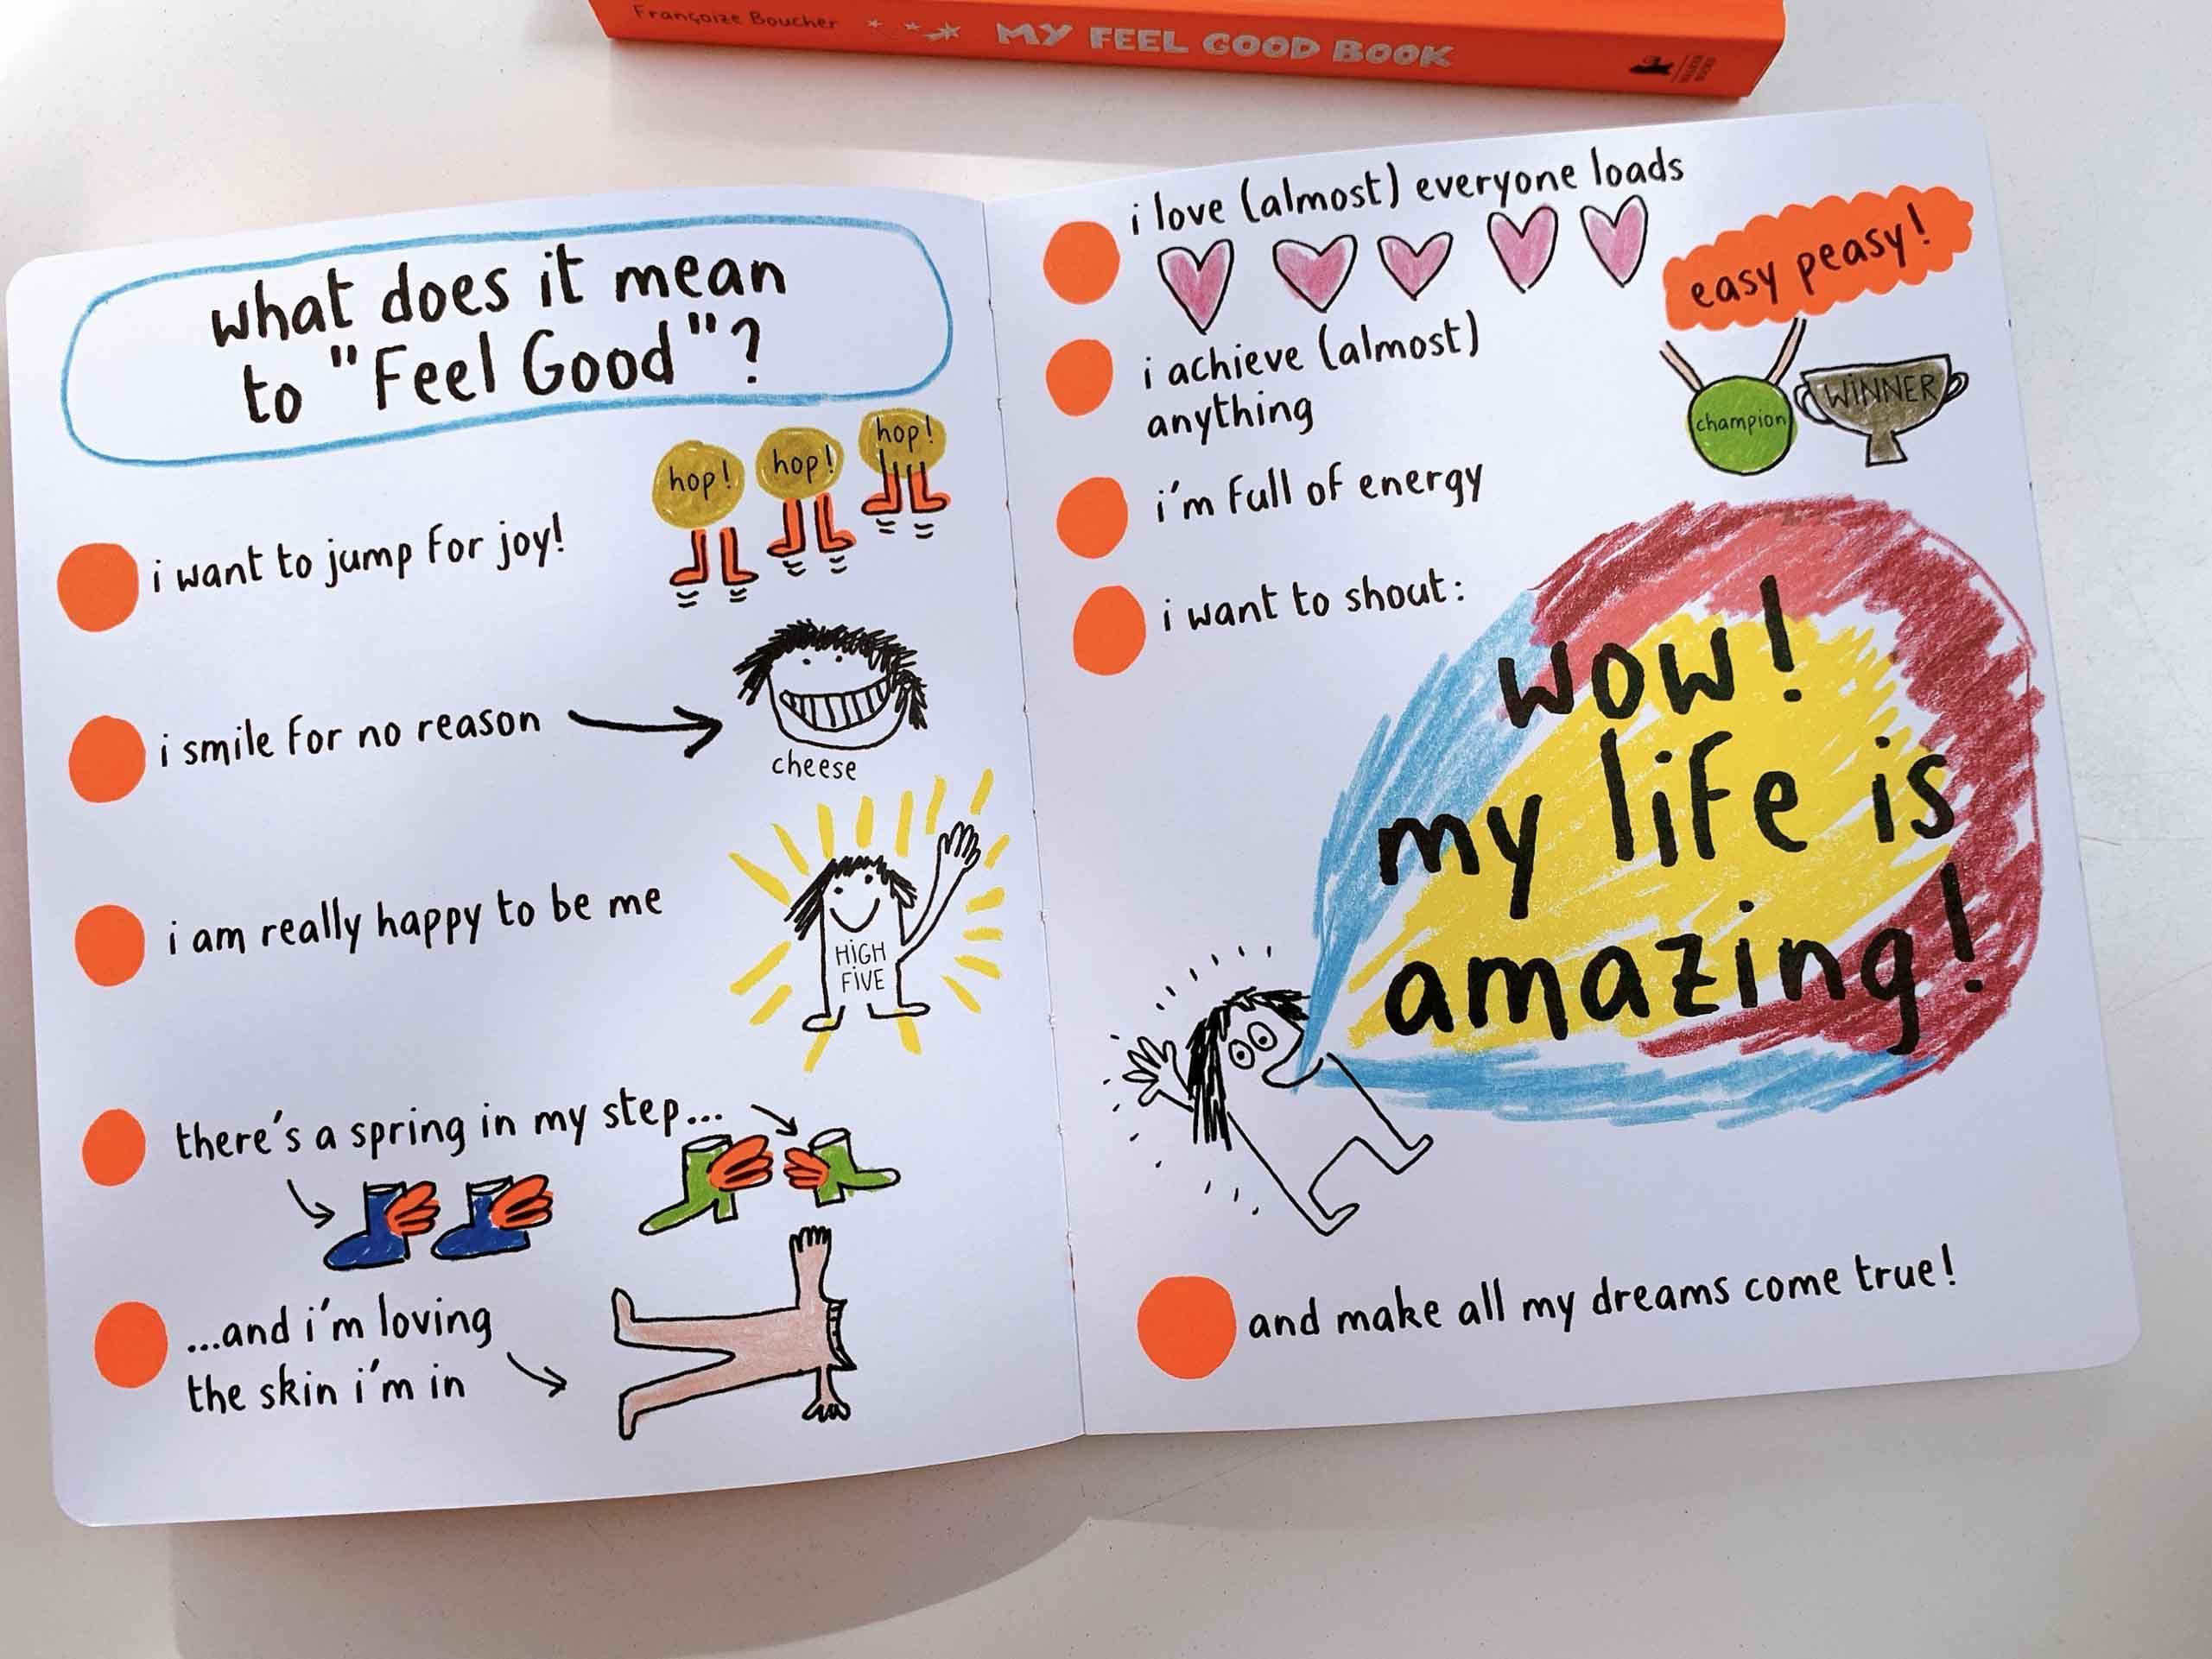 Françoize Boucher MY FEEL GOOD BOOK
what does it mean
to "Feel Good"?
i want to jump for joy!
hop! hop! hop!
i smile for no reason
cheese
i am really happy to be me
HIGH
FIVE
there's a spring in my step...
...and i'm loving
the skin i'm in
i love (almost) everyone loads
easy peasy!
i achieve (almost)
anything
champion
WINNER
i'm full of energy
i want to shout:
wow!
my life is
amazing!
and make all my dreams come true!